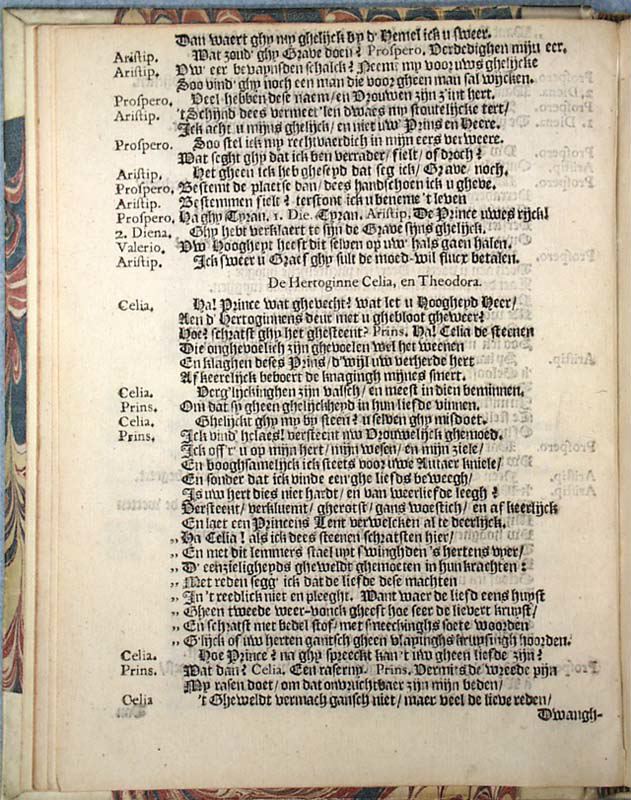 Dan waert ghy my ghelijck by d' Hemel ick u sweer.
Aristip. Wat zoud' ghy Grave doen? Prospero. Verdedighen mijn eer.
Aristip. Uw' eer bevaynsden schalck? Neemt my voor uws ghelijcke
Soo vind' ghy noch een man die voor gheen man sal wijcken.
Prospero. Veel hebben dese naem/ en Vrouwen zijn z'int hert.
Aristip. 't Schijnd dees vermeet'len dwaes my stoutelijcke tert/
Ick acht u mijns ghelijck/ en niet uw' Prins en Heere.
Prospero. Soo stel ick my rechtvaerdich in mijn eers verweere.
Wat seght ghy dat ick ben verrader/ fielt/ of droch?
Aristip. Het gheen ick heb gheseyd dat seg ick/ Grave/ noch.
Prospero. Bestemt de plaetse dan/ dees handschoen ick u gheve.
Aristip. Bestemmen fielt? terstont ick u beneme 't leven
Prospero. Ha ghy Tyran. 1. Die. Tyran. Aristip. De Prince uwes rijck!
2. Diena. Ghy hebt verklaert te sijn de Grave sijns ghelijck.
Valerio. Uw Hoogheyt heeft dit selven op uw' hals gaen halen.
Aristip. Ick sweer u Graef ghy sult de moed-wil sluer betalen.
De Hertoginne Celia, en Theodora.
Celia. Ha! Prince wat ghevecht? wat let u Hoogheyd Heer/
Aen d' Hertoginnens deur met u ghebloot gheweer?
Hoe? schratst ghy het ghesteent? Prins. Ha! Celia de steenen
Die onghevoelich zijn ghevoelen wel het weenen
En klaghen deses Prins/ d'wijl uw verherde hert
Af keerelijck behoert de knagingh mijnes smert.
Celia. Verg'lijckinghen zijn valsch/ en meest in dien beminnen.
Prins. Om dat sy gheen ghelijckheyd in hun liefde vinnen.
Celia. Ghelijckt ghy my by steen? u selven ghy misdoet.
Prins. Ick vind' helaes! versteent uw Vrouwelijck ghemoed.
Ick off'r' u op mijn hert/ mijn wesen/ en mijn ziele/
En booghsamelijck ick steets voor uwe Autaer kniele/
En sonder dat ick vinde een'ghe liefds beweegh/
Is uw hert dies niet hardt/ en van weerliefde leegh?
Versteent/ verkluemt/ gheroist/ gans woestich/ en af keerlijck
En laet een Princens Lent verwelcken al te deerlijck.
„ Ha Celia! als ick dees steenen schratsten hier/
„ En met dit lemmers stael uyt swinghden 's hertens vyer/
„ D' eenzieligheyds gheweldt ghemoeten in hun krachten:
„ Met reden segg' ick dat de liefde dese machten
„ In 't reedlick niet en pleeght. Want waer de liefd eens huyst
„ Gheen tweede weer-vonck gheeft hoe seer de lievert kruyst/
„ En schratst met bedel stof/ met smeeckinghs soete woorden
„ G'lijck of uw herten gantsch gheen vlapinghs kruysingh hoorden.
Celia. Hoe Prince? na ghy spreeckt kan't uw gheen liefde zijn?
Prins. Wat dan? Celia. Een raserny. Prins. Vermits de wreede pijn
My rasen doet/ om dat onvruchtbaer zijn mijn beden/
Celia 't Gheweldt vermach gansch niet/ maer veel de lieve reden/
Dwaugh-